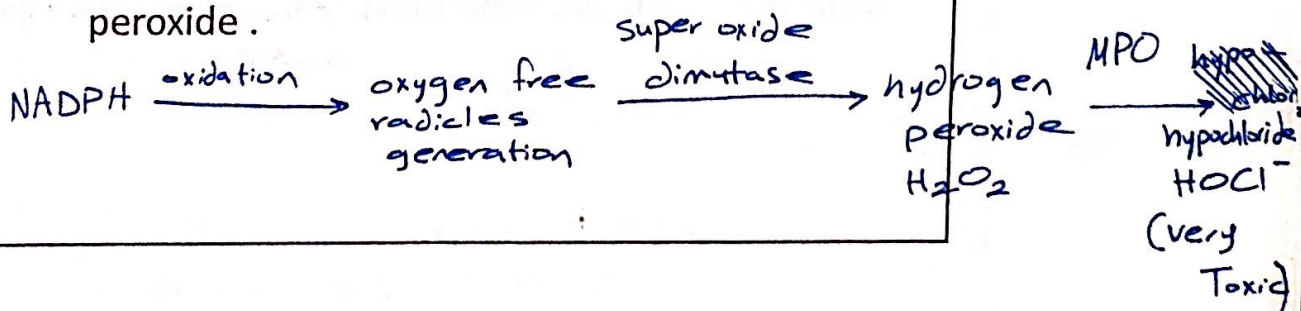 peroxide .
NADPH oxidation → oxygen free radicles generation
super oxide dimutase → hydrogen peroxide H₂O₂
MPO → hypochloride HOCl⁻
(very Toxic)